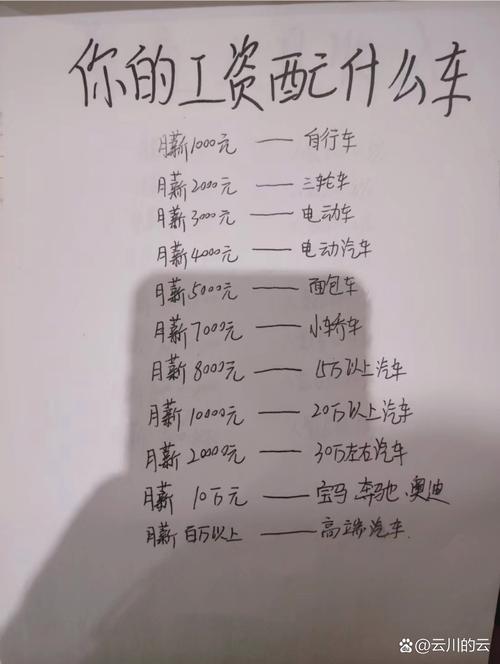 你的工资配什么车
月薪1000元 —— 自行车
月薪2000元 —— 三轮车
月薪3000元 —— 电动车
月薪4000元 —— 电动汽车
月薪5000元 —— 面包车
月薪7000元 —— 小轿车
月薪8000元 —— 15万以上汽车
月薪10000元 —— 20万以上汽车
月薪20000元 —— 30万左右汽车
月薪 10万元 —— 宝马、奔驰、奥迪
月薪 百万以上 —— 高端汽车.
@云川的云